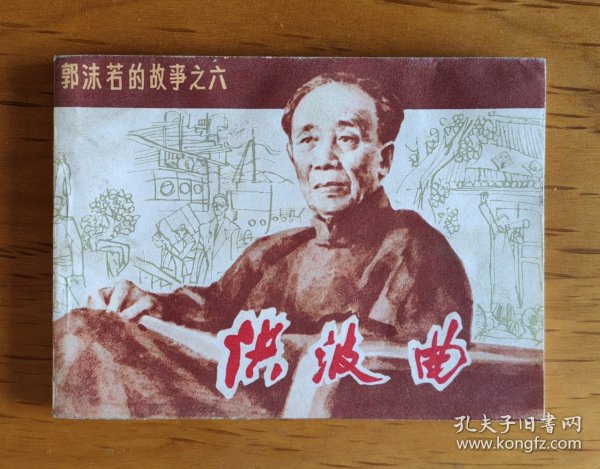 郭沫若的故事之六
洪波曲
孔夫子旧书网
www.kongfz.com